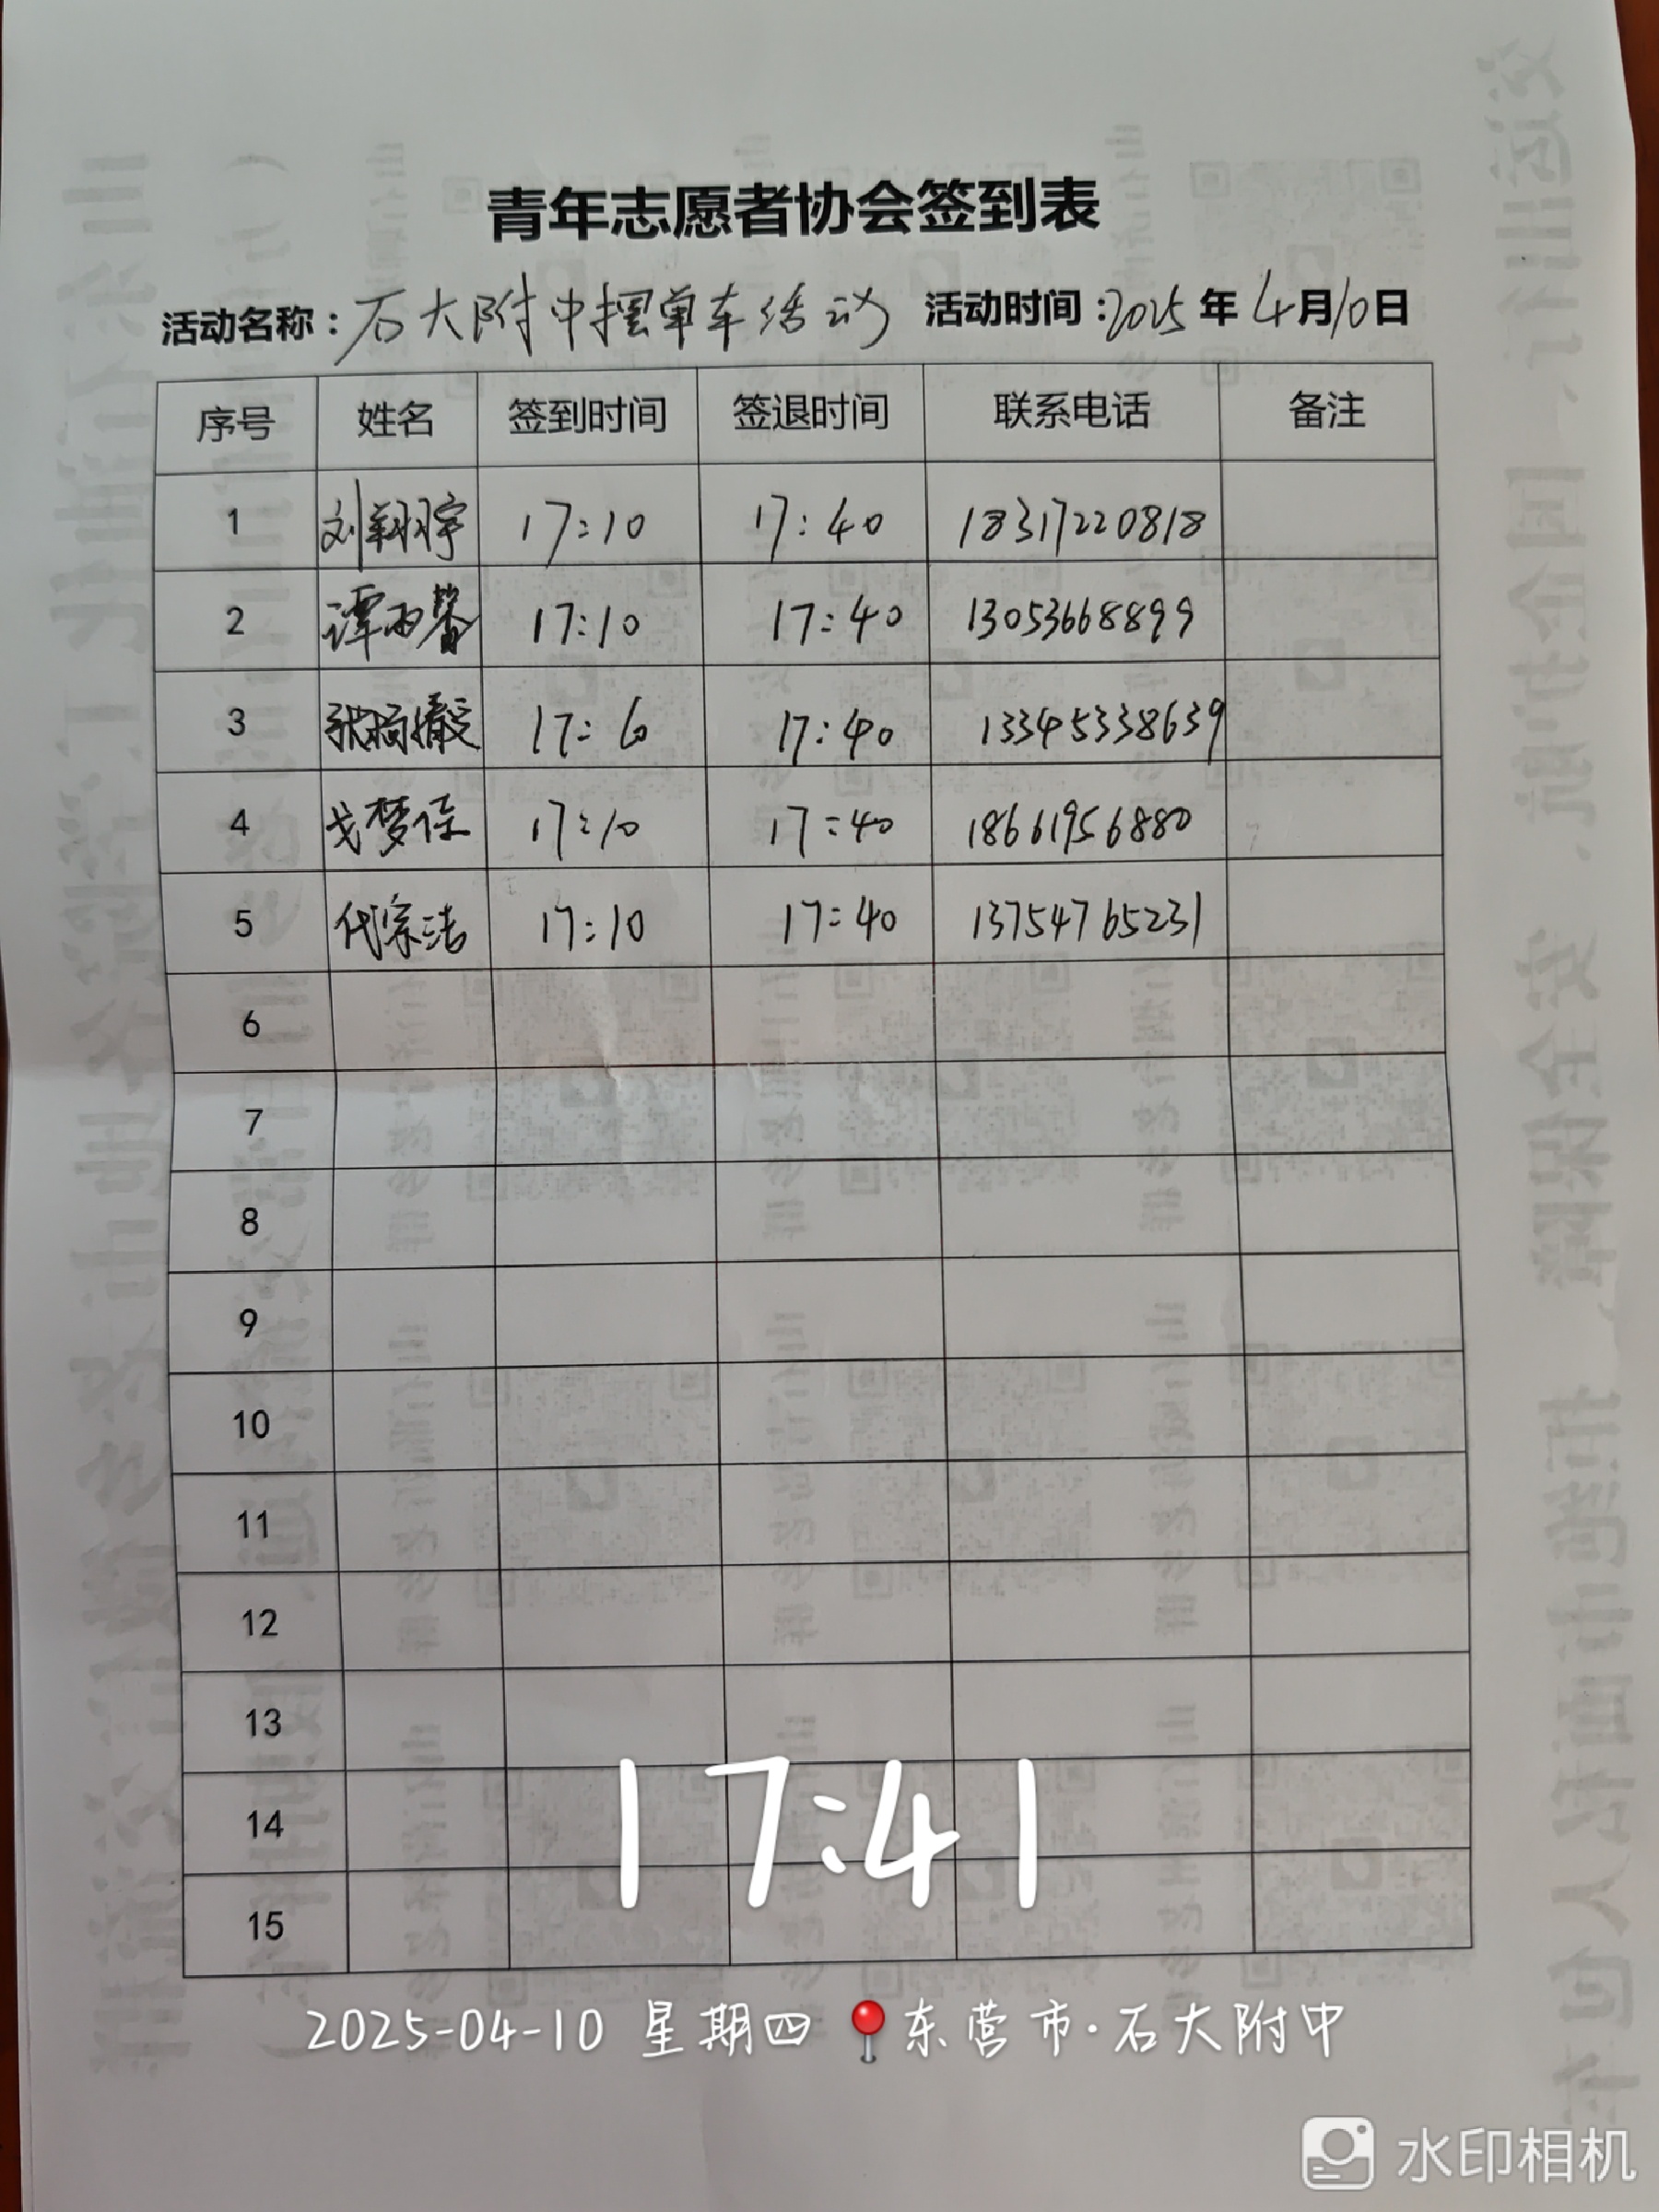 青年志愿者协会签到表
活动名称：石大附中摆单车活动 活动时间：2025年4月10日
序号 姓名 签到时间 签退时间 联系电话 备注
1 刘翔宇 17:10 17:40 18317220818
2 谭雨馨 17:10 17:40 13053668899
3 17:10 17:40 13345338639
4 戈梦佳 17:10 17:40 18661956880
5 代宗洁 17:10 17:40 13754765231
6
7
8
9
10
11
12
13
14
15
17:41
2025-04-10 星期四 东营市·石大附中
水印相机